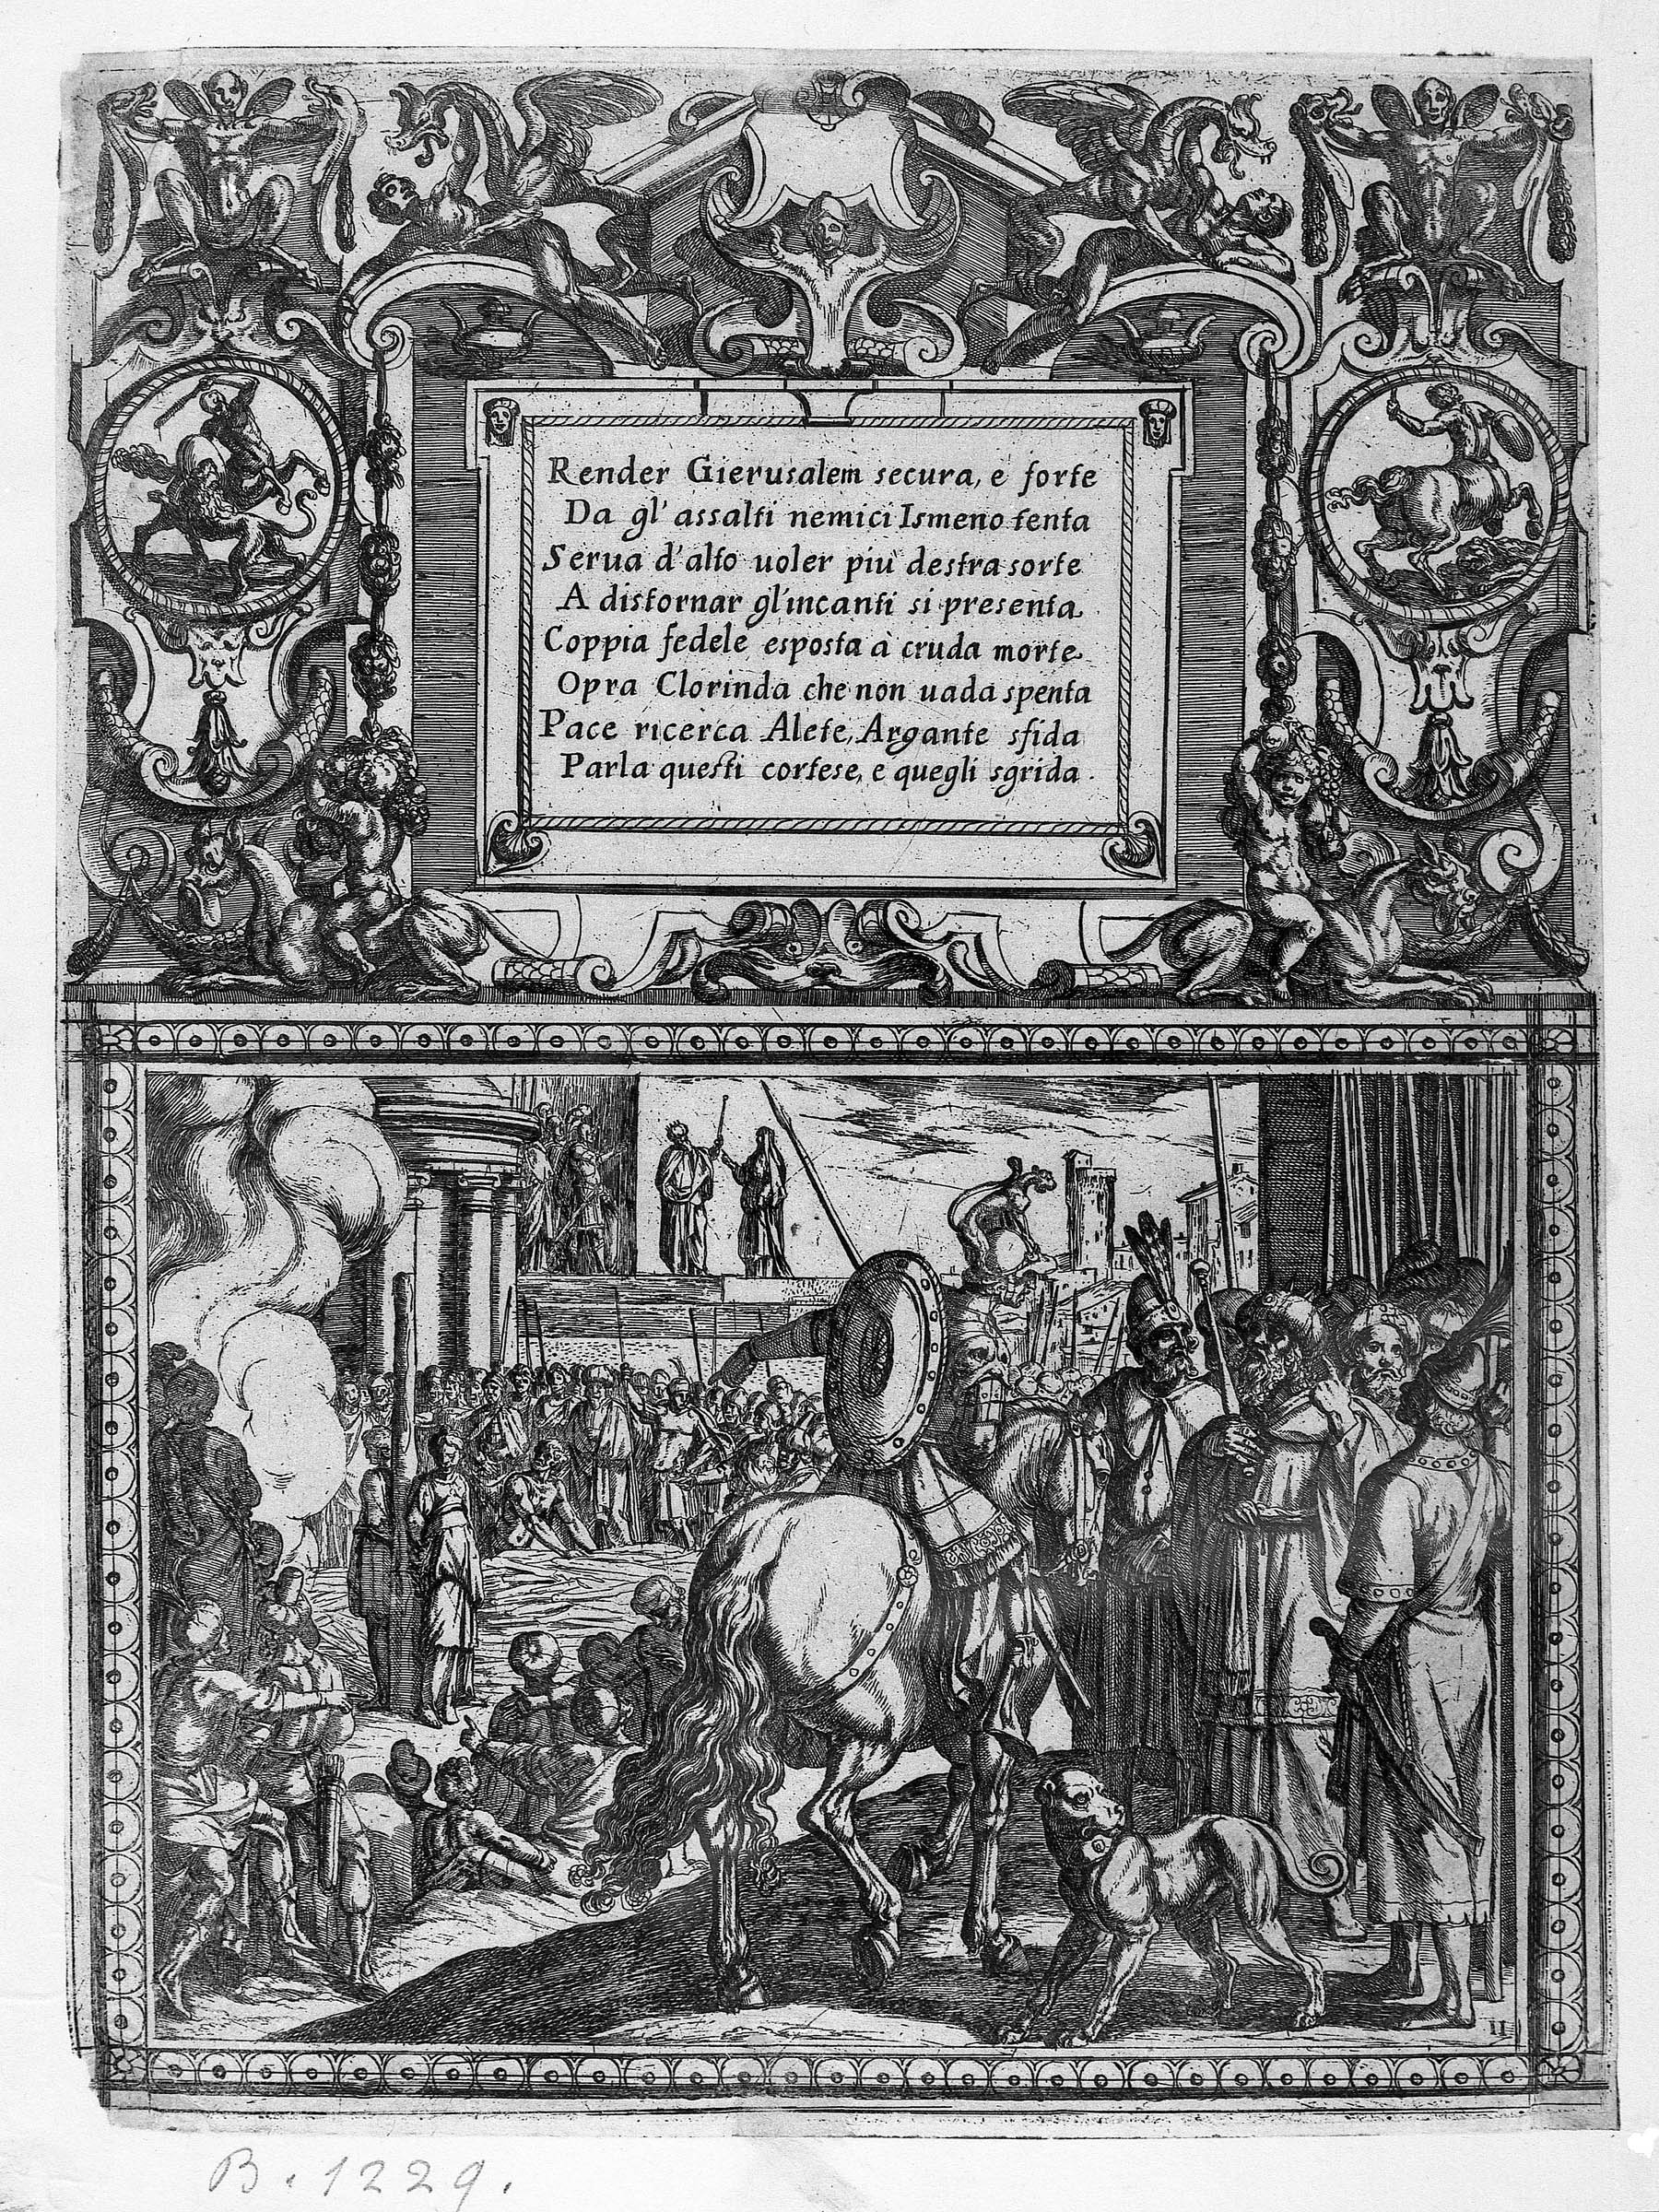 Render Gierusalem secura, e forte
Da gl' assalti nemici Ismeno tenta
Serua d'alto uoler più destra sorte
A distornar gl'incanti si presenta
Coppia fedele esposta à cruda morte
Opra Clorinda che non uada spenta
Pace ricerca Alete, Argante sfida
Parla questi cortese, e quegli sgrida.
II
B. 1229.